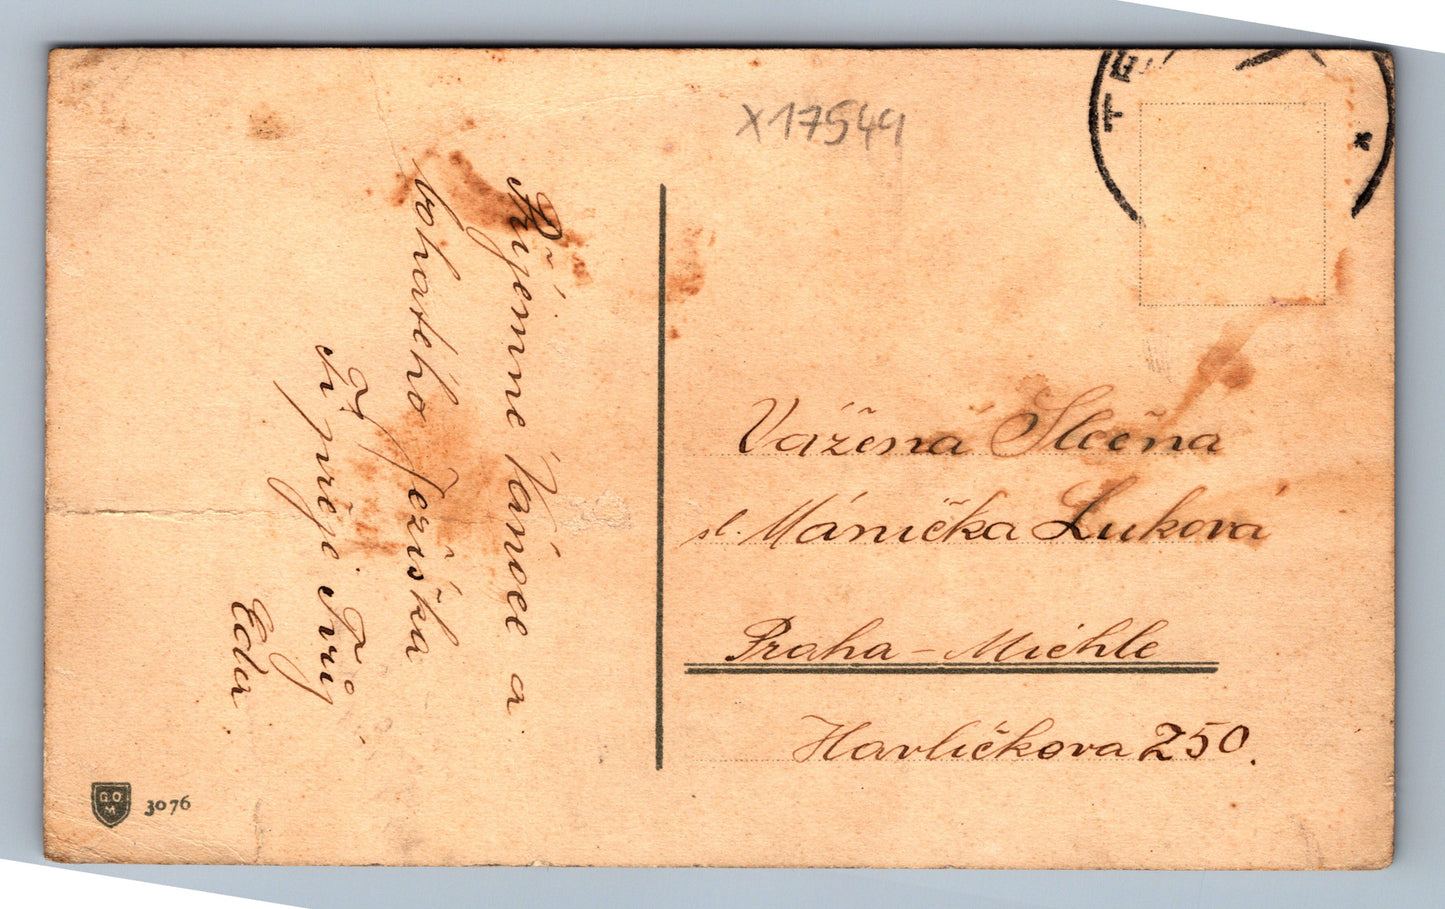 Příjemné Vánoce a
bohatého Ježíška
Ti přeje Tvůj
Eda
X17549
Vážená Slečna
sl. Mánička Luková
Praha - Michle
Havlíčkova 250.
GOM
3076